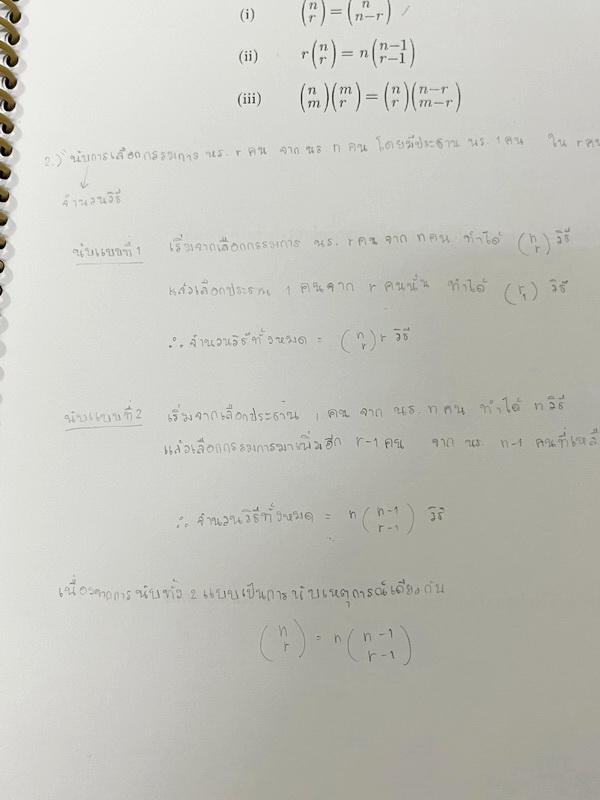 (i) \binom{n}{r} = \binom{n}{n-r}
(ii) r\binom{n}{r} = n\binom{n-1}{r-1}
(iii) \binom{n}{m}\binom{m}{r} = \binom{n}{r}\binom{n-r}{m-r}
2.) นับการเลือกกรรมการ นร. r คน จาก นร n คน โดยมีประธาน นร. 1 คน ใน r คน
จำนวนวิธี
นับแบบที่ 1 เริ่มจากเลือกกรรมการ นร. r คน จาก n คน ทำได้ \binom{n}{r} วิธี
แล้วเลือกประธาน 1 คนจาก r คนนั้น ทำได้ \binom{r}{1} วิธี
∴ จำนวนวิธีทั้งหมด = \binom{n}{r} r วิธี
นับแบบที่ 2 เริ่มจากเลือกประธาน 1 คน จาก นร. n คน ทำได้ n วิธี
แล้วเลือกกรรมการมาเพิ่มอีก r-1 คน จาก นร. n-1 คนที่เหลือ
∴ จำนวนวิธีทั้งหมด = n\binom{n-1}{r-1} วิธี
เนื่องจากการนับทั้ง 2 แบบเป็นการนับเหตุการณ์เดียวกัน
\binom{n}{r} = n\binom{n-1}{r-1}